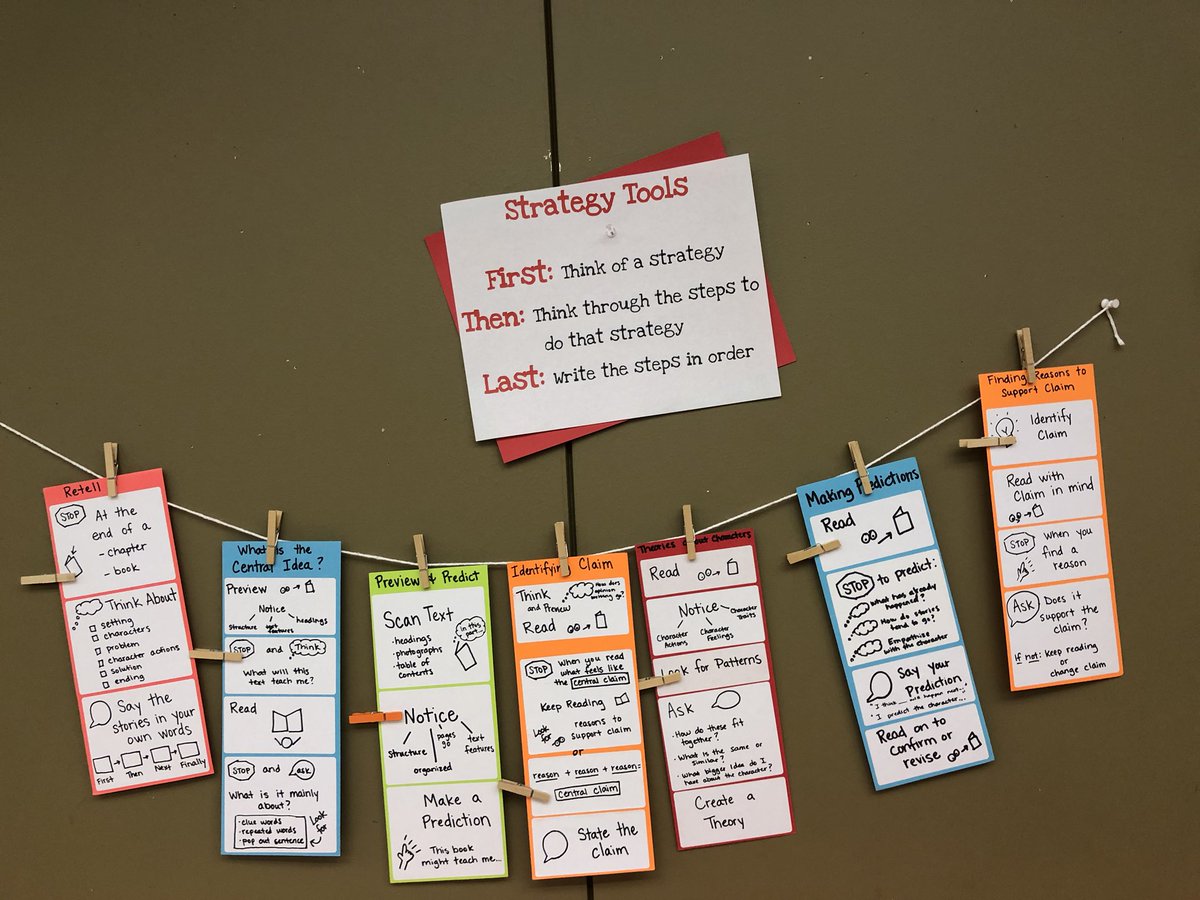 Strategy Tools
First: Think of a strategy
Then: Think through the steps to
do that strategy
Last: Write the steps in order
Retell
STOP
At the
end of a
- chapter
- book
Think About
setting
characters
problem
character actions
solution
ending
Say the
stories in your
own words
First Then Next Finally
What is the
Central Idea?
Preview
Notice
Structure text features headings
STOP and Think
What will this
text teach me?
Read
STOP and ask
What is it mainly
about?
• clue words
• repeated words
• pop out sentence
Look
for
Preview & Predict
Scan Text
• headings
• photographs
• table of
contents
In this
part...
Notice
structure
pages
go
organized
text
features
Make a
Prediction
This book
might teach me...
Identifying Claim
Think
and Preview
How does
opinion
writing go?
Read
STOP
When you read
what feels like
the central claim
Keep Reading
Look
for
reasons to
support claim
or
reason + reason + reason =
Central claim
State the
claim
Theories about Characters
Read
Notice
Character
Actions
Character
Feelings
Character
Traits
Look for Patterns
Ask
• How do these fit
together?
• What is the same or
similar?
• What bigger idea do I
have about the character?
Create a
Theory
Making Predictions
Read
STOP to predict:
What has already
happened?
How do stories
tend to go?
Empathize
with the character
Say your
Prediction
"I think ... happen next..."
"I predict the character...
Read on to
confirm or
revise
Finding Reasons to
Support Claim
Identify
Claim
Read with
Claim in mind
STOP
When you
find a
reason
Ask
Does it
support the
claim?
If not: Keep reading
or
change claim